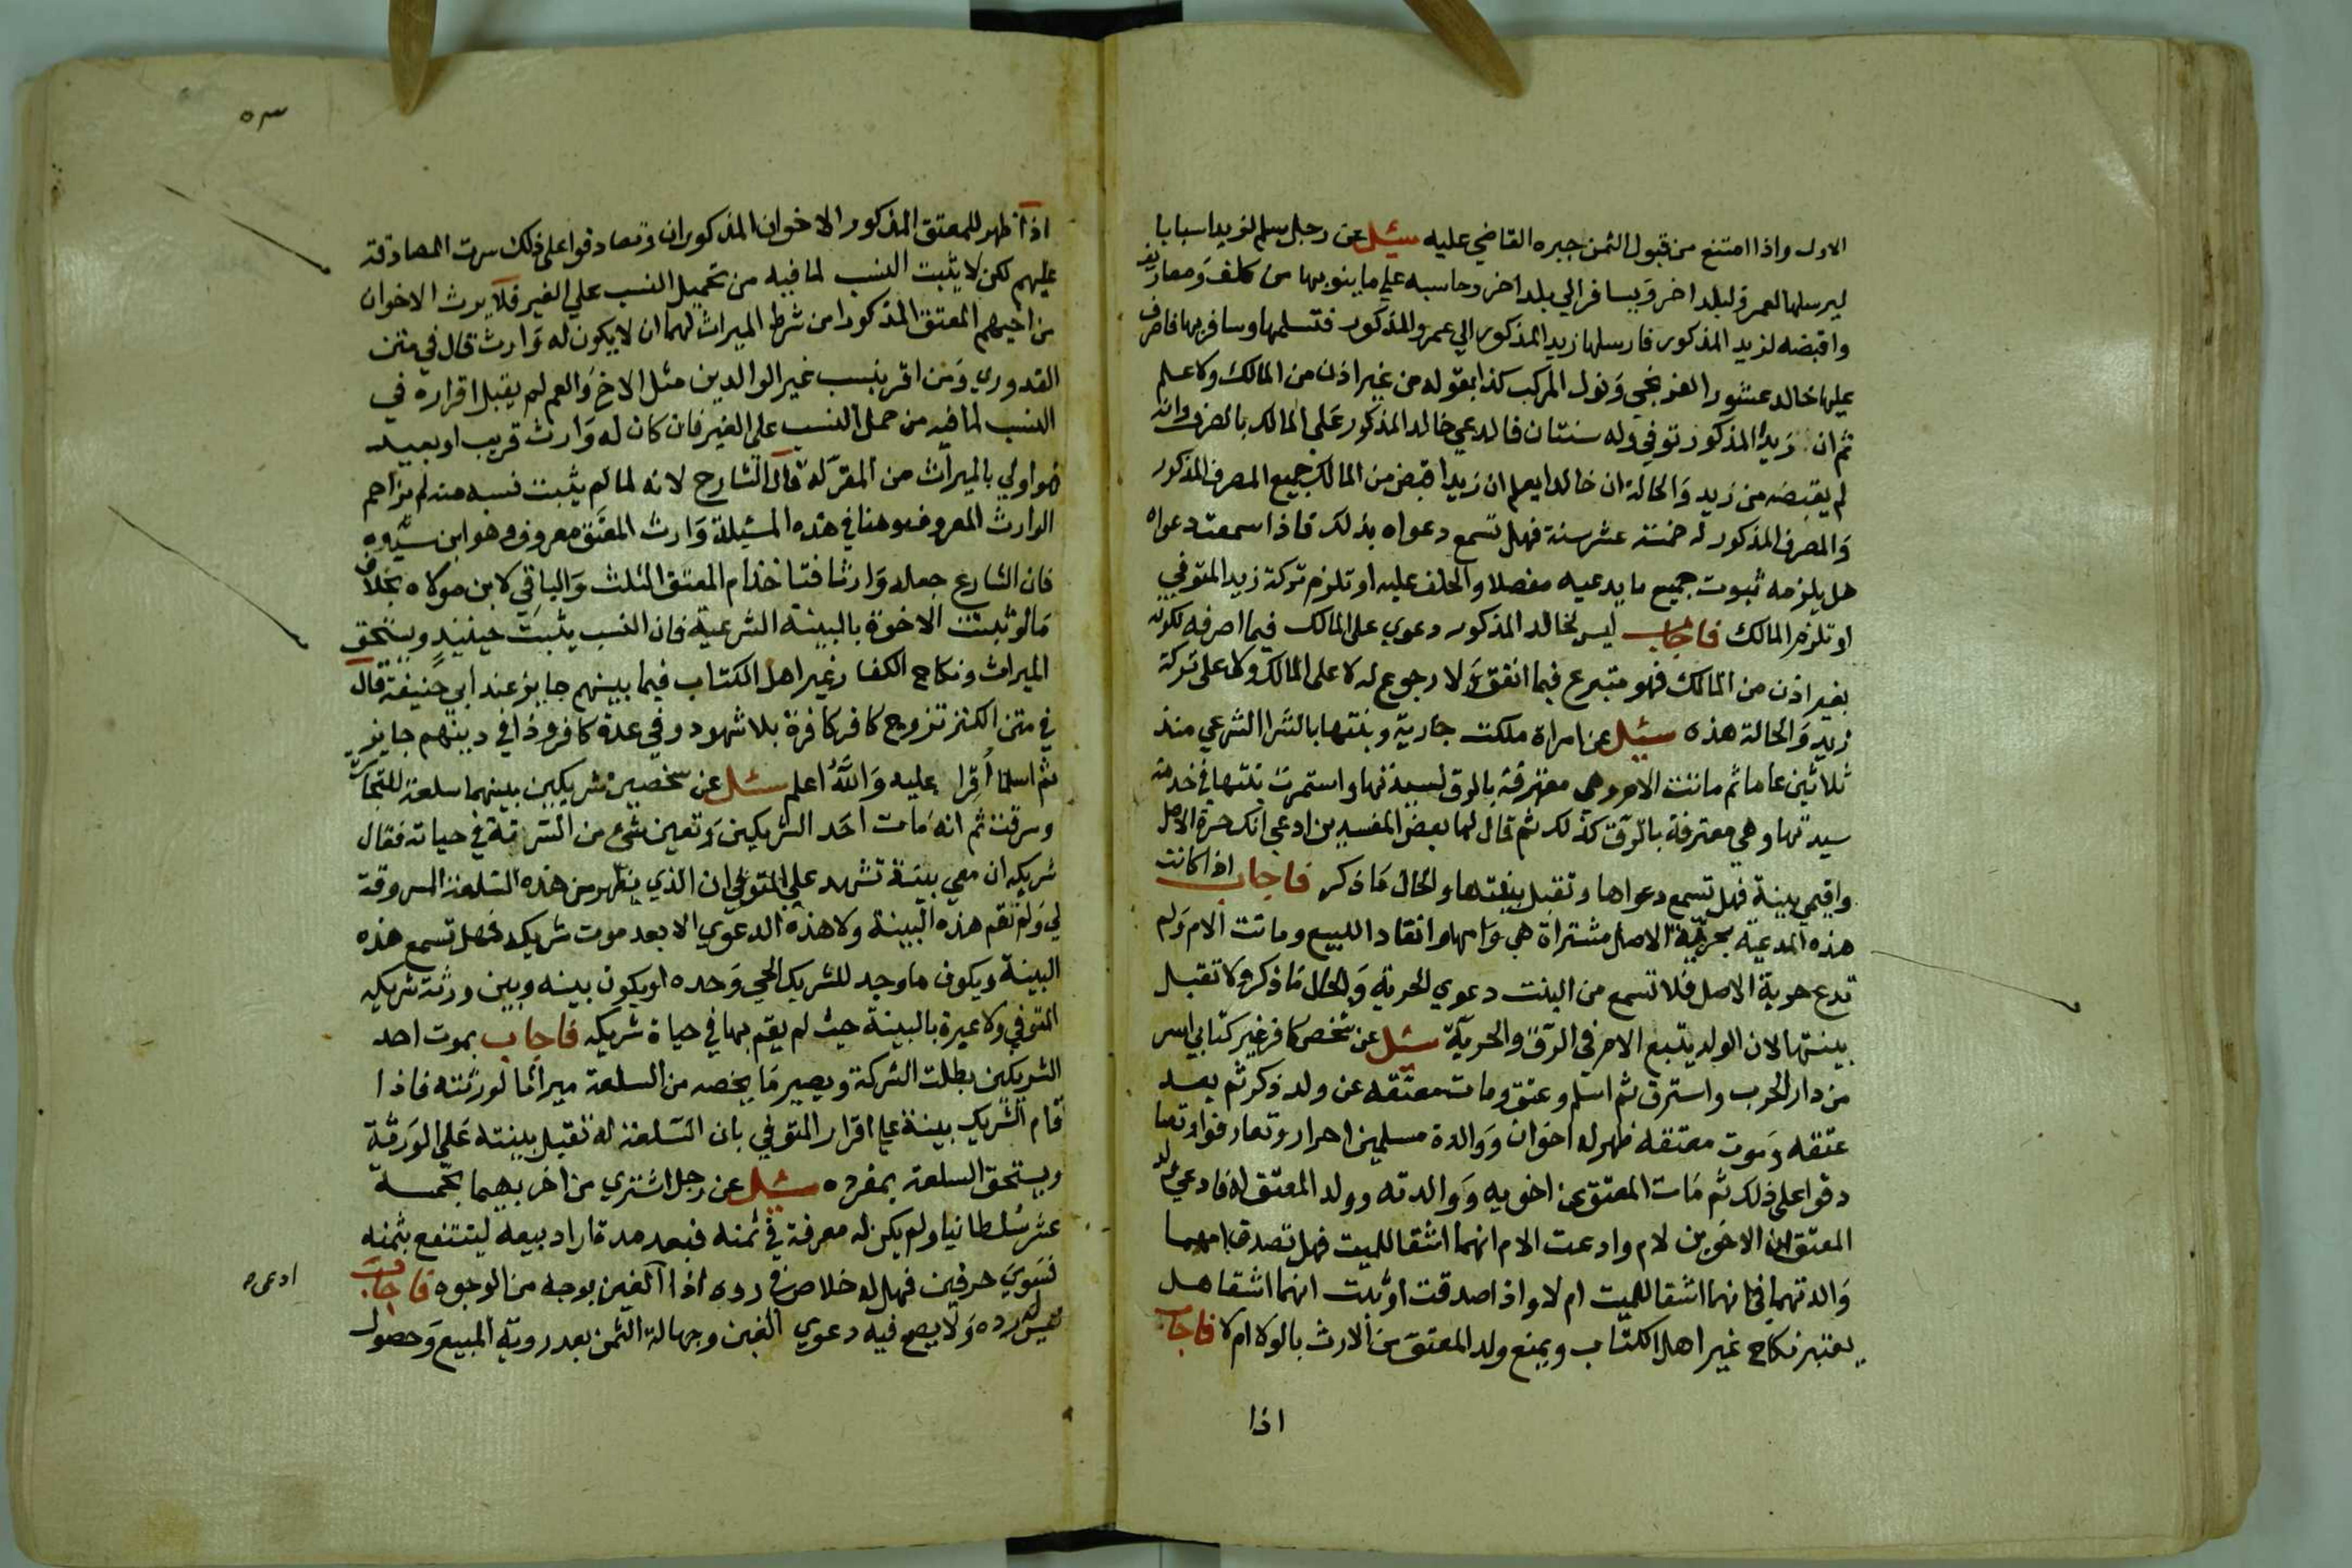 الاول واذا امتنع من قبول الثمن جبره القاضي عليه سئل عن رجل سلم لزيد اسبابا
ليرسلها لعمرو لبلد اخر ويسافر الي بلد اخر وحاسبه علي ما ينوبها من كلف ومصاريف
واقبضه لزيد المذكور فارسلها زيد المذكور الي عمرو المذكور فتسلمها وسافر بها فاصرف
عليها خالد عشور الفرنجي ونول المركب كذا بقوله من غير اذن من المالك ولا علم
ثم ان زيد المذكور توفي وله سنتان فادعي خالد المذكور علي المالك بالصرف وانه
لم يقبضه من زيد والحالة ان خالدا يعلم ان زيدا قبض من المالك جميع المصرف المذكور
والمصرف المذكور له خمسة عشر سنة فهل تسمع دعواه بذلك فاذا سمعت دعواه
هل يلزمه ثبوت جميع ما يدعيه مفصلا والحلف عليه او تلزم تركة زيد المتوفي
او تلزم المالك فاجاب ليس لخالد المذكور دعوي علي المالك فيما اصرفه لكونه
بغير اذن من المالك فهو متبرع فيما انفق ولا رجوع له لا علي المالك ولا علي تركة
زيد والحالة هذه سئل عن امراة ملكت جارية وبنتها بالشرا الشرعي منذ
ثلاثين عاما ثم ماتت الام وهي معترفة بالرق لسيدتها واستمرت بنتها في خدمة
سيدتها وهي معترفة بالرق كذلك ثم قال لها بعض المفسدين ادعي انك حرة الاصل
واقيمي بينة فهل تسمع دعواها وتقبل بينتها والحال ما ذكر فاجاب اذا كانت
هذه المدعية بحرية الاصل مشتراة هي وامها وانقاد للبيع وماتت الام ولم
تدع حرية الاصل فلا تسمع من البنت دعوي الحرية والحال ما ذكر ولا تقبل
بينتها لان الولد يتبع الام في الرق والحرية سئل عن شخص كافر غير كتابي اسر
من دار الحرب واسترق ثم اسلم وعتق ومات معتقه عن ولد ذكر ثم بعد
عتقه وموت معتقه ظهر له اخوان ووالدة مسلمين احرار وتعارفوا وتصا
دقوا علي ذلك ثم مات المعتق عن اخويه ووالدته وولد المعتق له فادعي ولد
المعتق ان الاخوين لام وادعت الام انهما اشقا للميت فهل تصدق امهما
والدتهما في انهما اشقا للميت ام لا واذا صدقت او ثبت انهما اشقا هل
يعتبر نكاح غير اهل الكتاب ويمنع ولد المعتق من الارث بالولا ام لا فاجاب
اذا
٥٣
اذا ظهر للمعتق المذكور الاخوان المذكوران وتصادقوا علي ذلك سرت المصادقة
عليهم لكن لا يثبت النسب لما فيه من تحميل النسب علي الغير فلا يرث الاخوان
من اخيهم المعتق المذكور اذ من شرط الميراث لهما ان لا يكون له وارث قال في متن
القدوري ومن اقر بنسب غير الوالدين مثل الاخ والعم لم يقبل اقراره في
النسب لما فيه من حمل النسب علي الغير فان كان له وارث قريب او بعيد
فهو اولي بالميراث من المقر له قال الشارح لانه لما لم يثبت نسبه منه لم يزاحم
الوارث المعروف وهنا في هذه المسئلة وارث المعتق معروف وهو ابن سيده
فان الشارع جعله وارثا فتاخذ ام المعتق الثلث والباقي لابن مولاه بخلاف
ما لو ثبتت الاخوة بالبينة الشرعية فان النسب يثبت حينئذ ويستحق
الميراث ونكاح الكفار غير اهل الكتاب فيما بينهم جايز عند ابي حنيفة قال
في متن الكنز تزوج كافر كافرة بلا شهود او في عدة كافر وذا في دينهم جايز
ثم اسلما اقرا عليه والله اعلم سئل عن شخصين شريكين بينهما سلعة للتجارة
وسرقت ثم انه مات احد الشريكين وتعين شئ من السرقة في حياته فقال
شريكه ان معي بينة تشهد علي المتوفي ان الذي يظهر من هذه السلعة المسروقة
لي ولم تقم هذه البينة ولا هذه الدعوي الا بعد موت شريكه فهل تسمع هذه
البينة ويكون ما وجد للشريك الحي وحده او يكون بينه وبين ورثة شريكه
المتوفي ولا عبرة بالبينة حيث لم يقم بها في حياة شريكه فاجاب بموت احد
الشريكين بطلت الشركة ويصير ما يخصه من السلعة ميراثا لورثته فاذا
قام الشريك بينة علي اقرار المتوفي بان السلعة له تقبل بينته علي الورثة
ويستحق السلعة بمفرده سئل عن رجل اشتري من اخر بهيما بخمسة
عشر سلطانيا ولم يكن له معرفة في ثمنه فبعد مدة اراد بيعه لينتفع بثمنه
فسوي حرفين فهل له خلاص في رده اذا الغبن بوجه من الوجوه فاجاب
ادعي
ليس له رده ولا يصح فيه دعوي الغبن وجهالة الثمن بعد روية المبيع وحصول